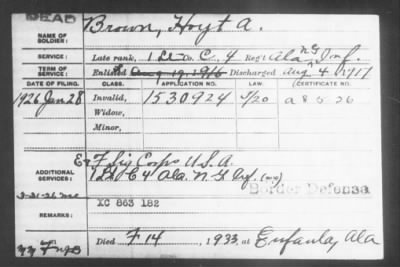 DEAD
NAME OF SOLDIER: Brown, Hoyt A.
SERVICE: Late rank, 1 Lt Co. C, 4 Reg't Ala N.G. Inf.
TERM OF SERVICE: Enlisted Aug 19, 1916 Discharged Aug 4, 1917
DATE OF FILING. CLASS. APPLICATION NO. LAW. CERTIFICATE NO.
1926 Jan 28 Invalid, 1530924
Widow,
Minor,
ADDITIONAL SERVICES: F Sig Corps U.S.A.
1 Lt C 4 Ala. N.G. Inf.
Border Defense
3-31-26
XC 863 182
REMARKS:
Died 14, 1933, at Eufaula, Ala